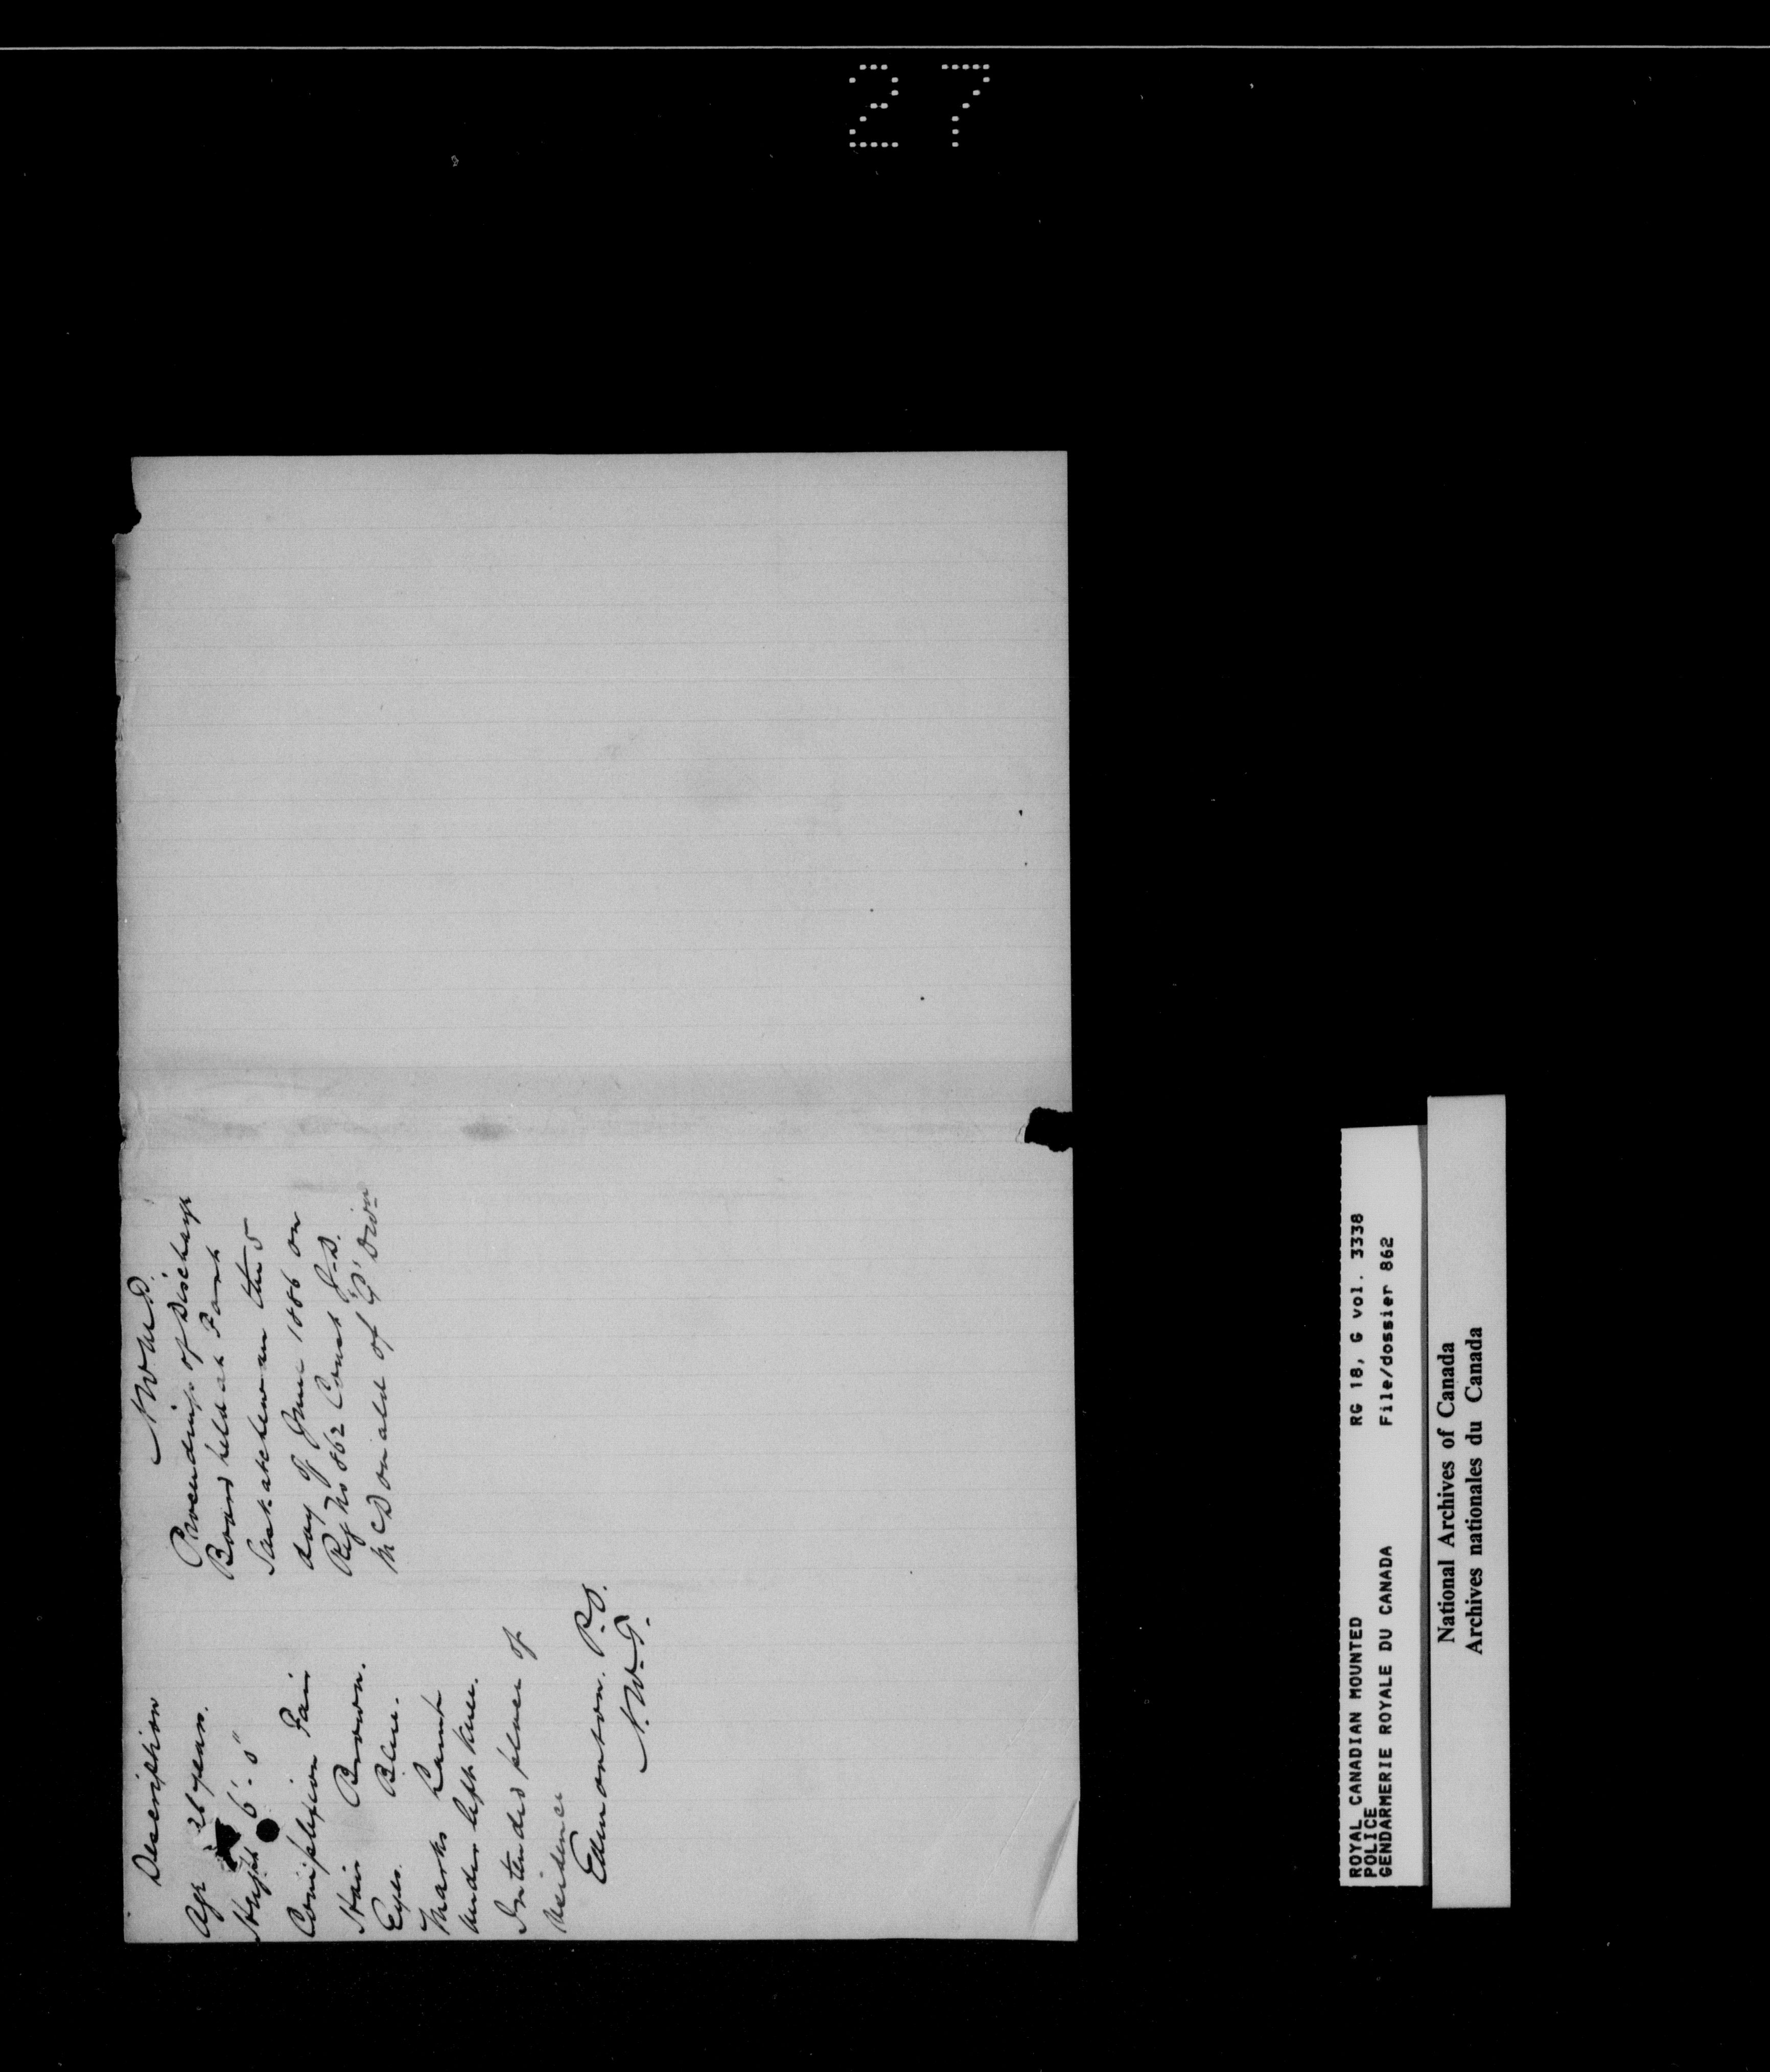 27
Description
Age 26 years.
Height 6'. 0"
Complexion Fair
Hair Brown.
Eyes. Blue.
Marks
under left knee.
Intended place of
residence
Edmonton. P.O.
N.W.T.
N.W.M.P.
Proceedings of Discharge
Board held at Fort
Saskatchewan the 5
day of June 1886 on
Reg No 862 Const J.D.
McDonald of "G" Divn
ROYAL CANADIAN MOUNTED RG 18, G vol. 3338
POLICE
GENDARMERIE ROYALE DU CANADA File/dossier 862
National Archives of Canada
Archives nationales du Canada